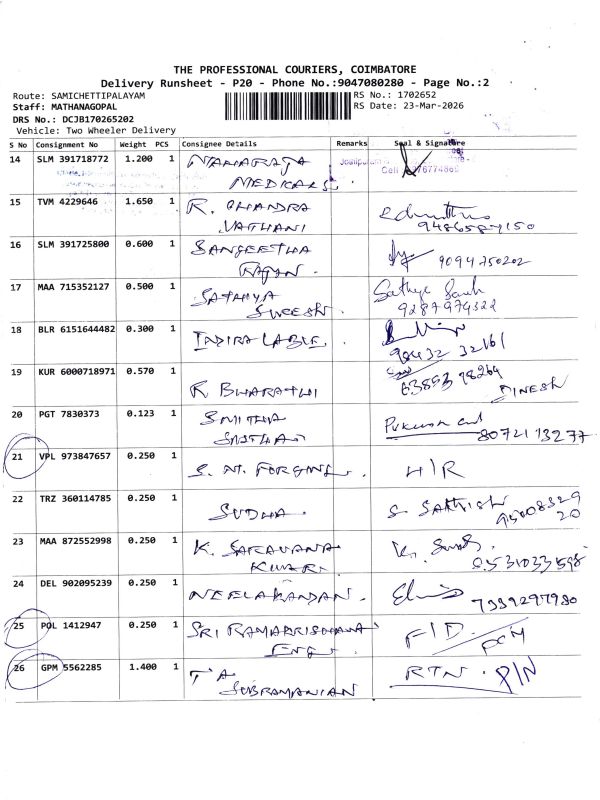 THE PROFESSIONAL COURIERS, COIMBATORE
Delivery Runsheet - P20 - Phone No.:9047080280 - Page No.:2
Route: SAMICHETTIPALAYAM
RS No.: 1702652
Staff: MATHANAGOPAL
RS Date: 23-Mar-2026
DRS No.: DCJB170265202
Vehicle: Two Wheeler Delivery
S No Consignment No Weight PCS Consignee Details Remarks Seal & Signature
14 SLM 391718772 1.200 1
MEDICALS.
15 TVM 4229646 1.650 1 R. CHANDRA
VATHANI
16 SLM 391725800 0.600 1 SANGEETHA
RAJAN.
9094750202
17 MAA 715352127 0.500 1 SATHYA
SURESH.
9287979322
18 BLR 6151644482 0.300 1 INDIRA LABLE.
98432 32161
19 KUR 6000718971 0.570 1 R BHARATHI
63853 98264
DINESH
20 PGT 7830373 0.123 1 SMITHA
80721 13277
21 VPL 973847657 0.250 1 S. M. FORGING. H/R
22 TRZ 360114785 0.250 1 SUDHA. S. SATHISH
95008329
20
23 MAA 872552998 0.250 1 K. SARAVANA
KUMAR.
8531033598
24 DEL 902095239 0.250 1 NEELAKANDAN.
7339297980
25 POL 1412947 0.250 1 SRI RAMAKRISHANA
ENG. F/D.
26 GPM 5562285 1.400 1 T A
SUBRAMANIAN
RTN. P/N